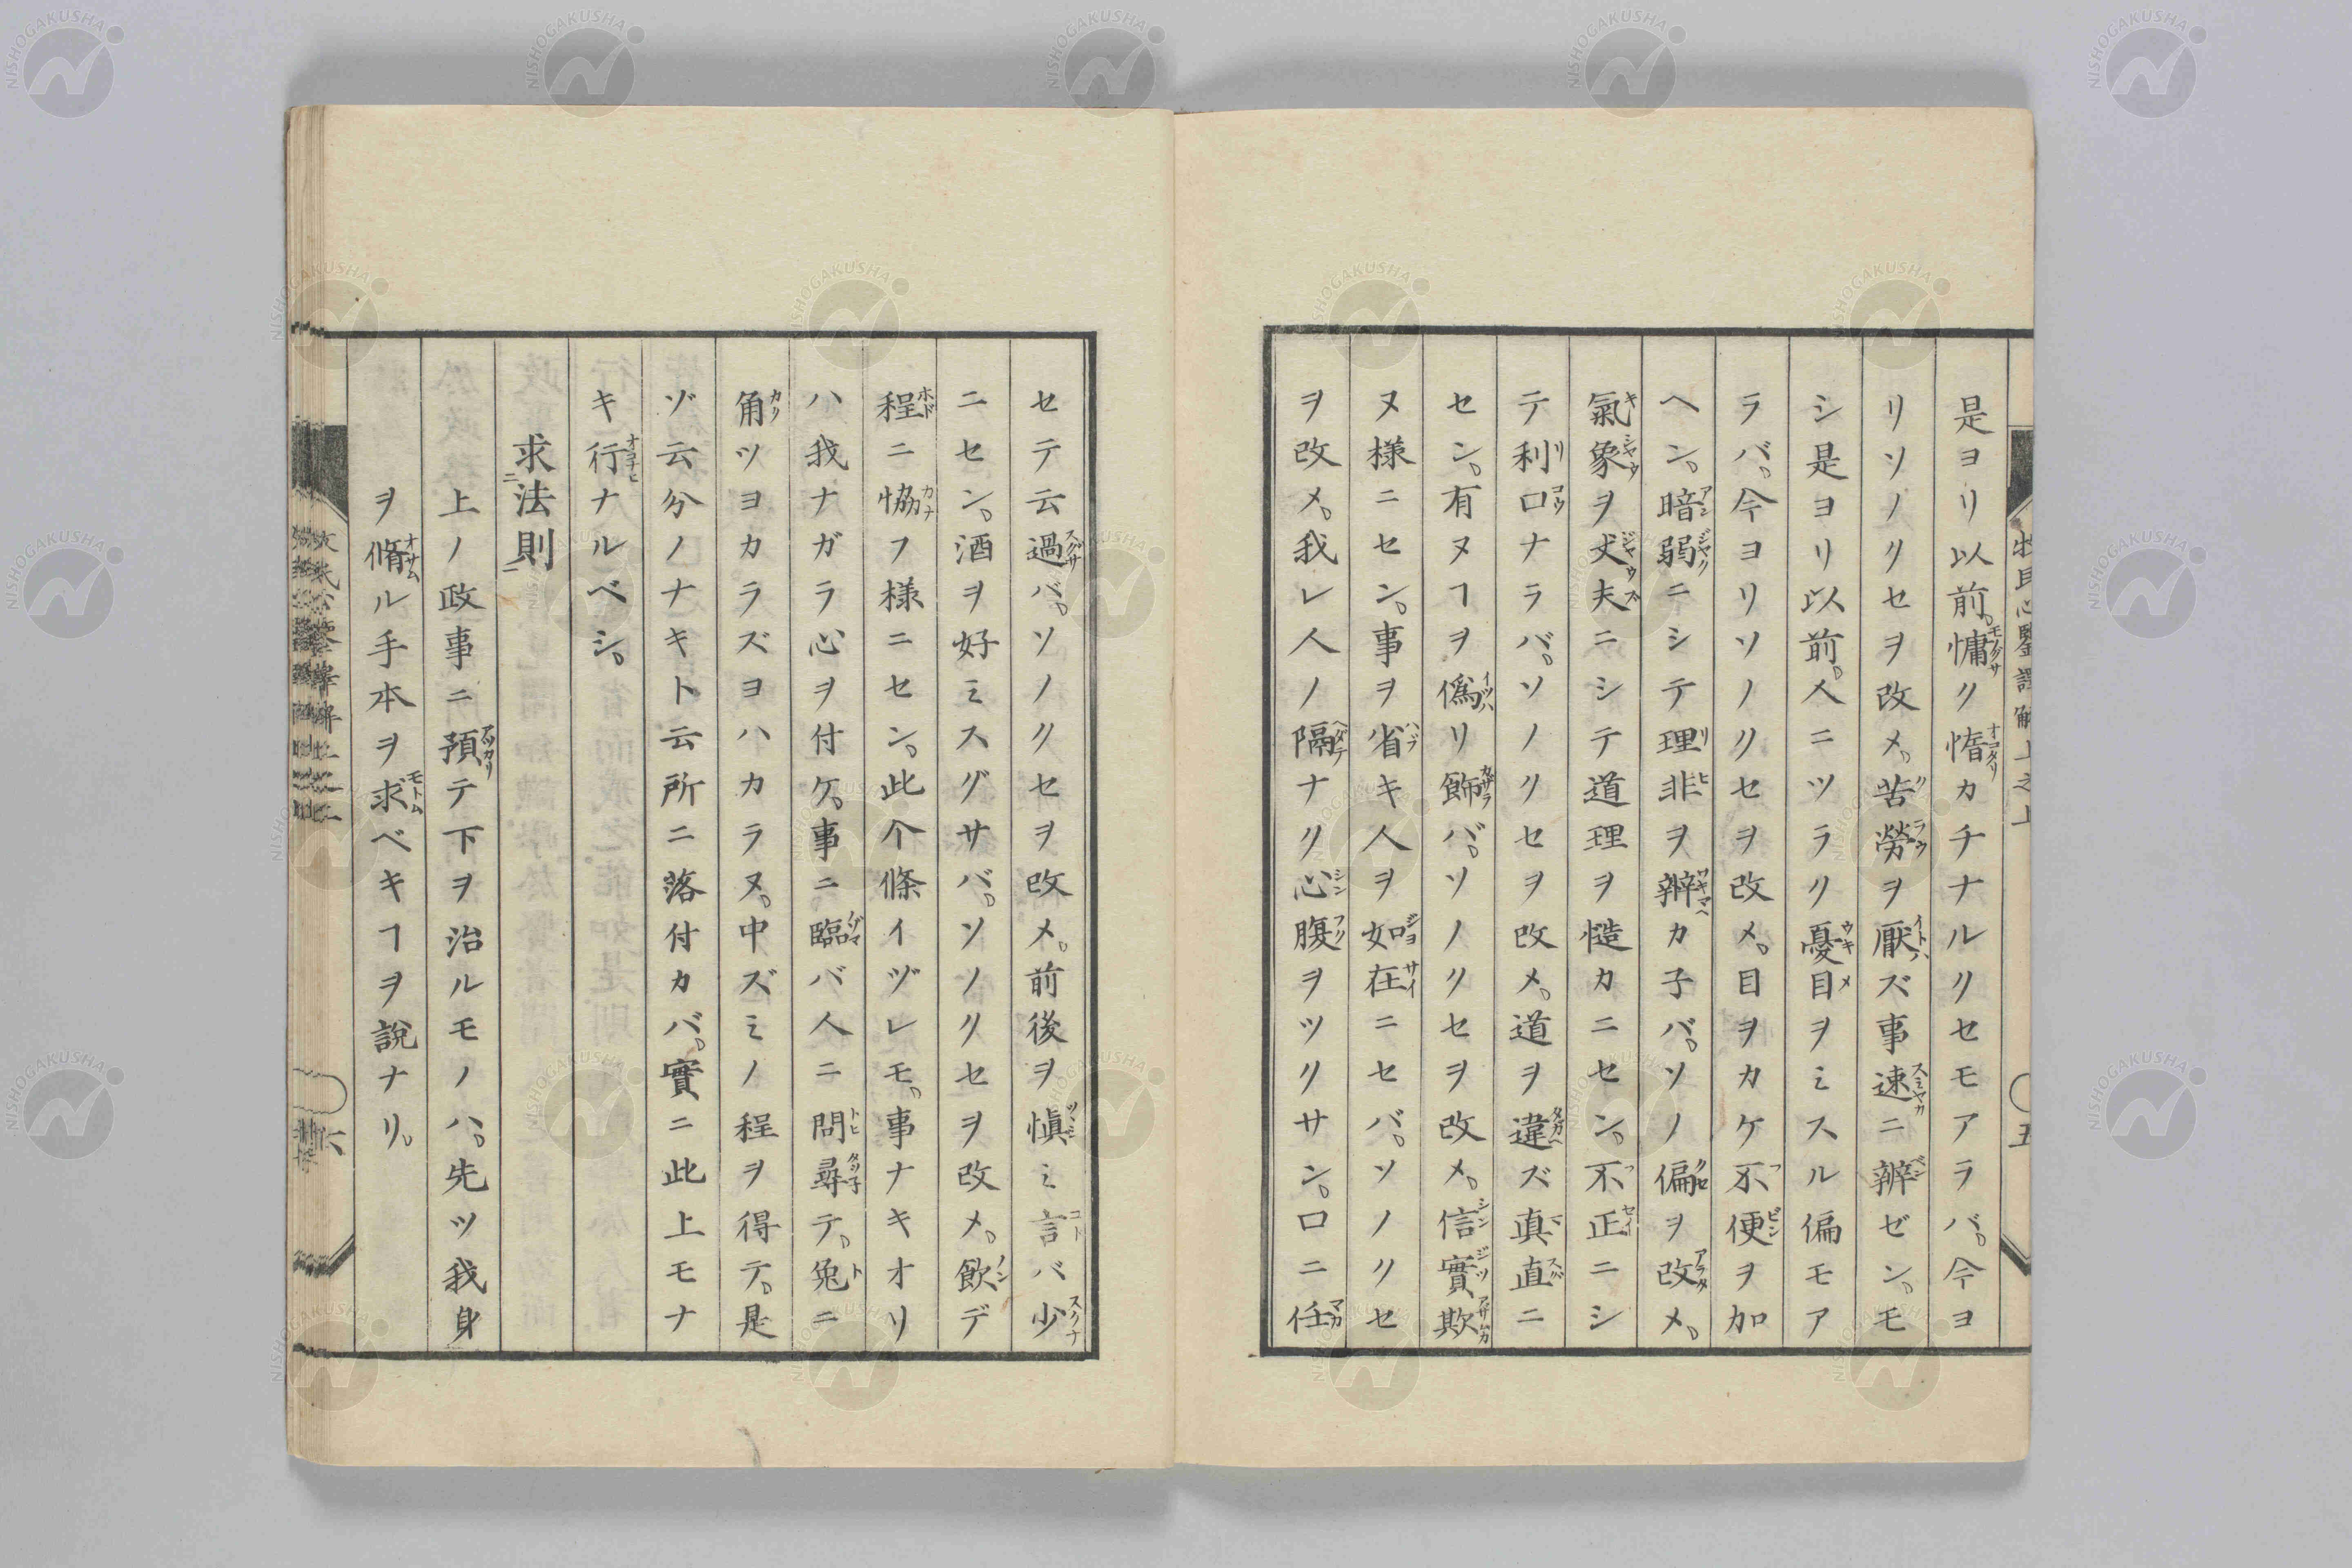 是ヨリ以前。慵ク惰カチナルクセモアラバ。今ヨ
リソノクセヲ改メ。苦勞ヲ厭ズ事速ニ辨ゼン。モ
シ是ヨリ以前。人ニツラク憂目ヲミスル偏モア
ラバ。今ヨリソノクセヲ改メ。目ヲカケ不便ヲ加
ヘン。暗弱ニシテ理非ヲ辨カ子バ。ソノ偏ヲ改メ。
氣象ヲ丈夫ニシテ道理ヲ慥カニセン。不正ニシ
テ利口ナラバ。ソノクセヲ改メ。道ヲ違ズ真直ニ
セン。有ヌヿヲ僞リ飾バ。ソノクセヲ改メ。信實欺
ヌ様ニセン。事ヲ省キ人ヲ如在ニセバ。ソノクセ
ヲ改メ。我レ人ノ隔ナク心腹ヲツクサン。口ニ任
セテ云過バ。ソノクセヲ改メ。前後ヲ愼ミ言バ少
ニセン。酒ヲ好ミスグサバ。ソノクセヲ改メ。飲デ
程ニ恊フ様ニセン。此个條イヅレモ。事ナキオリ
ハ我ナガラ心ヲ付ケ。事ニ臨バ人ニ問尋テ。兎ニ
角ツヨカラズヨハカラヌ。中ズミノ程ヲ得テ。是
ゾ云分ノナキト云所ニ落付カバ。實ニ此上モナ
キ行ナルベシ。
求法則
上ノ政事ニ預テ下ヲ治ルモノハ。先ツ我身
ヲ脩ル手本ヲ求ベキヿヲ說ナリ。
牧民心鑒譯解上之上
五
六
NISHOGAKUSHA